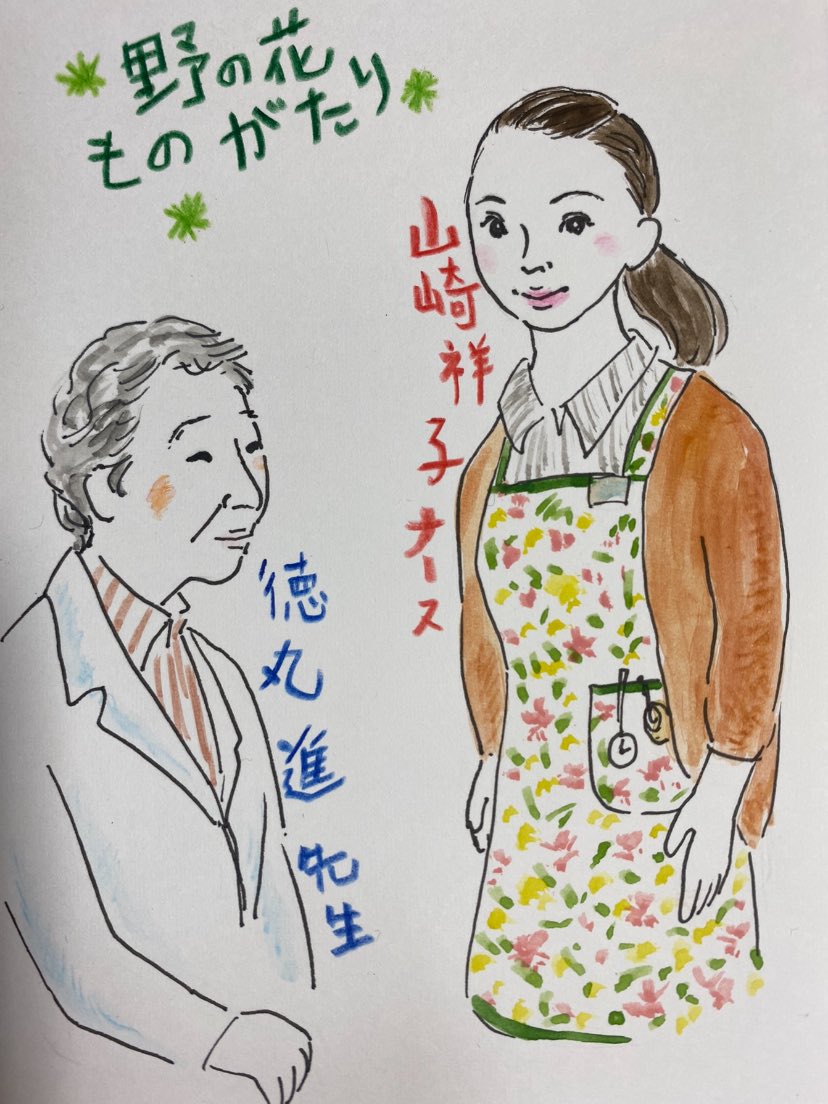 野の花
ものがたり
山崎祥子ナース
徳丸進先生